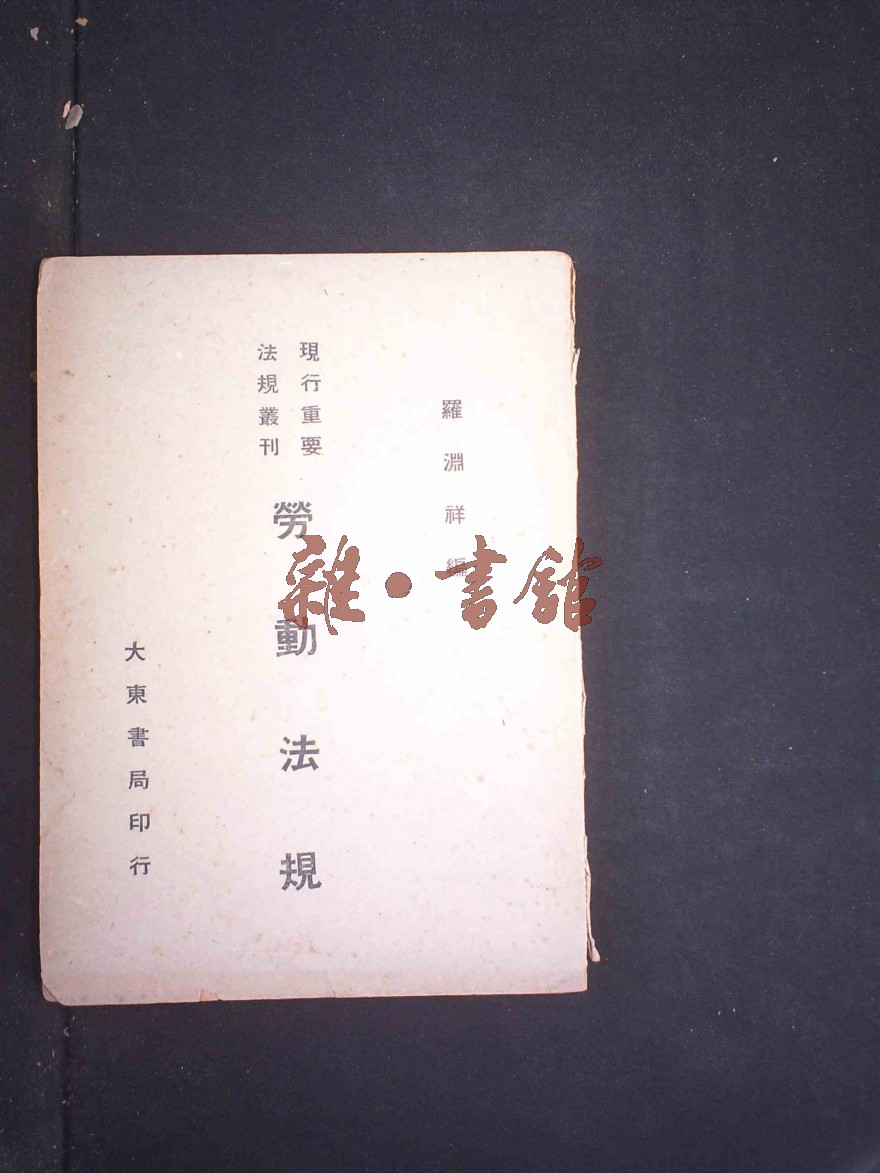 羅淵祥編
現行重要
法規叢刊
勞動法規
大東書局印行
雜·書館